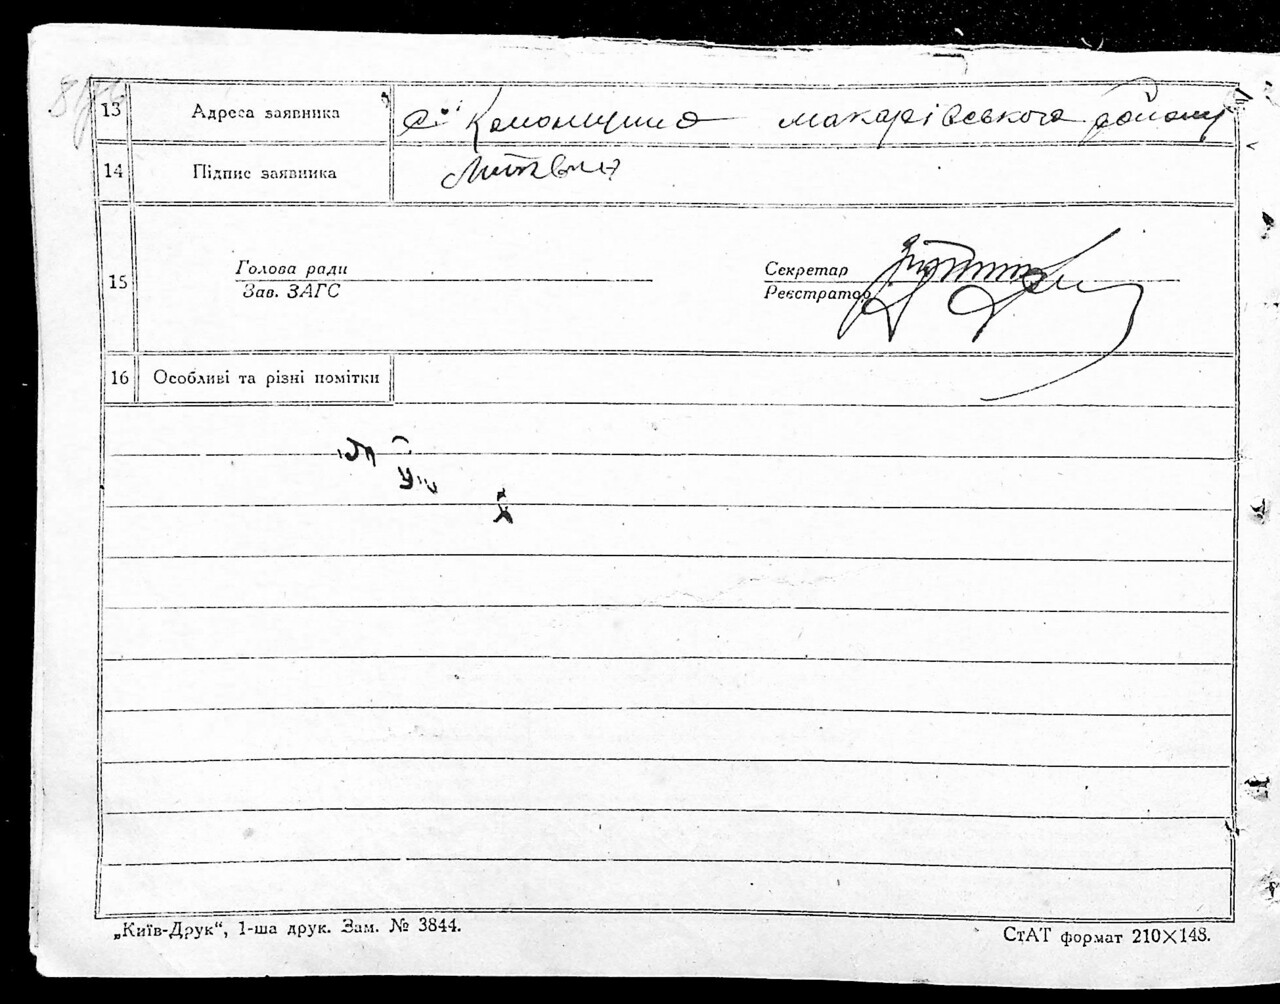 13 Адреса заявника с. Колонщина макарівського району
14 Підпис заявника Литвин
15 Голова ради Секретар
Зав. ЗАГС Реєстратор
16 Особливі та різні помітки
„Київ-Друк“, 1-ша друк. Зам. № 3844. СтАТ формат 210×148.